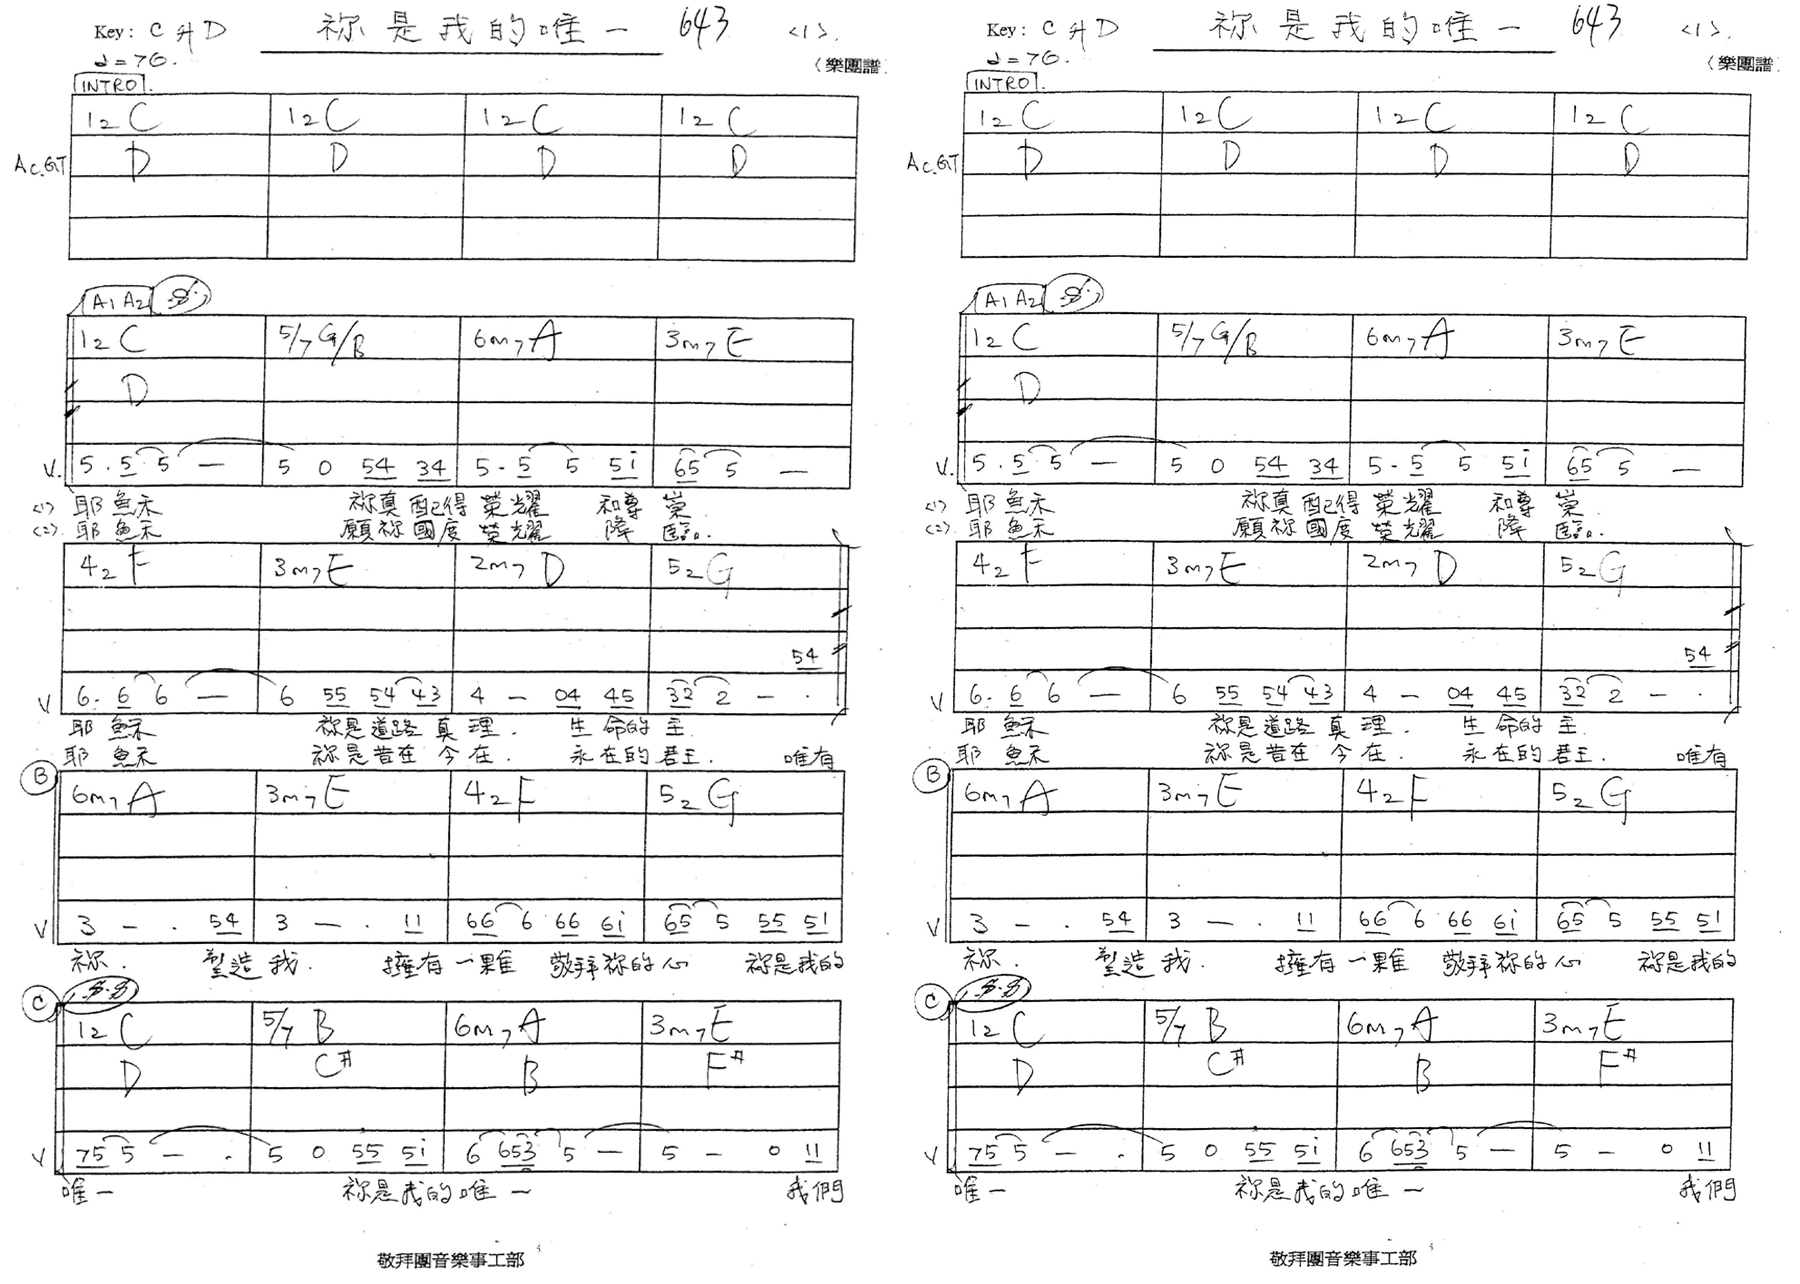 Key: C 升 D 祢是我的唯一 643 <1>.
♩=76. (樂團譜
INTRO.
1₂ C 1₂ C 1₂ C 1₂ C
Ac.GT D D D D
A1 A2
1₂ C 5/7 G/B 6m7 A 3m7 E
D
V. 5 . 5 5 — 5 0 54 34 5 . 5 5 5i 65 5 —
<1> 耶穌 祢真配得榮耀 和尊崇
<2>. 耶穌 願祢國度榮耀 降臨.
4₂ F 3m7 E 2m7 D 5₂ G
54
V 6. 6 6 — 6 55 54 43 4 — 04 45 32 2 — .
耶穌 祢是道路真理. 生命的主
耶穌 祢是昔在今在. 永在的君王. 唯有
B
6m7 A 3m7 E 4₂ F 5₂ G
V 3 — . 54 3 — . 11 66 6 66 6i 65 5 55 51
祢. 塑造我. 擁有一顆 敬拜祢的心 祢是我的
C
1₂ C 5/7 B 6m7 A 3m7 E
D C# B F#
V 75 5 — . 5 0 55 5i 6 653 5 — 5 — 0 11
唯一 祢是我的唯一 我們
敬拜團音樂事工部
Key: C 升 D 祢是我的唯一 643 <1>.
♩=76. (樂團譜
INTRO.
1₂ C 1₂ C 1₂ C 1₂ C
Ac.GT D D D D
A1 A2
1₂ C 5/7 G/B 6m7 A 3m7 E
D
V. 5 . 5 5 — 5 0 54 34 5 . 5 5 5i 65 5 —
<1> 耶穌 祢真配得榮耀 和尊崇
<2>. 耶穌 願祢國度榮耀 降臨.
4₂ F 3m7 E 2m7 D 5₂ G
54
V 6. 6 6 — 6 55 54 43 4 — 04 45 32 2 — .
耶穌 祢是道路真理. 生命的主
耶穌 祢是昔在今在. 永在的君王. 唯有
B
6m7 A 3m7 E 4₂ F 5₂ G
V 3 — . 54 3 — . 11 66 6 66 6i 65 5 55 51
祢. 塑造我. 擁有一顆 敬拜祢的心 祢是我的
C
1₂ C 5/7 B 6m7 A 3m7 E
D C# B F#
V 75 5 — . 5 0 55 5i 6 653 5 — 5 — 0 11
唯一 祢是我的唯一 我們
敬拜團音樂事工部